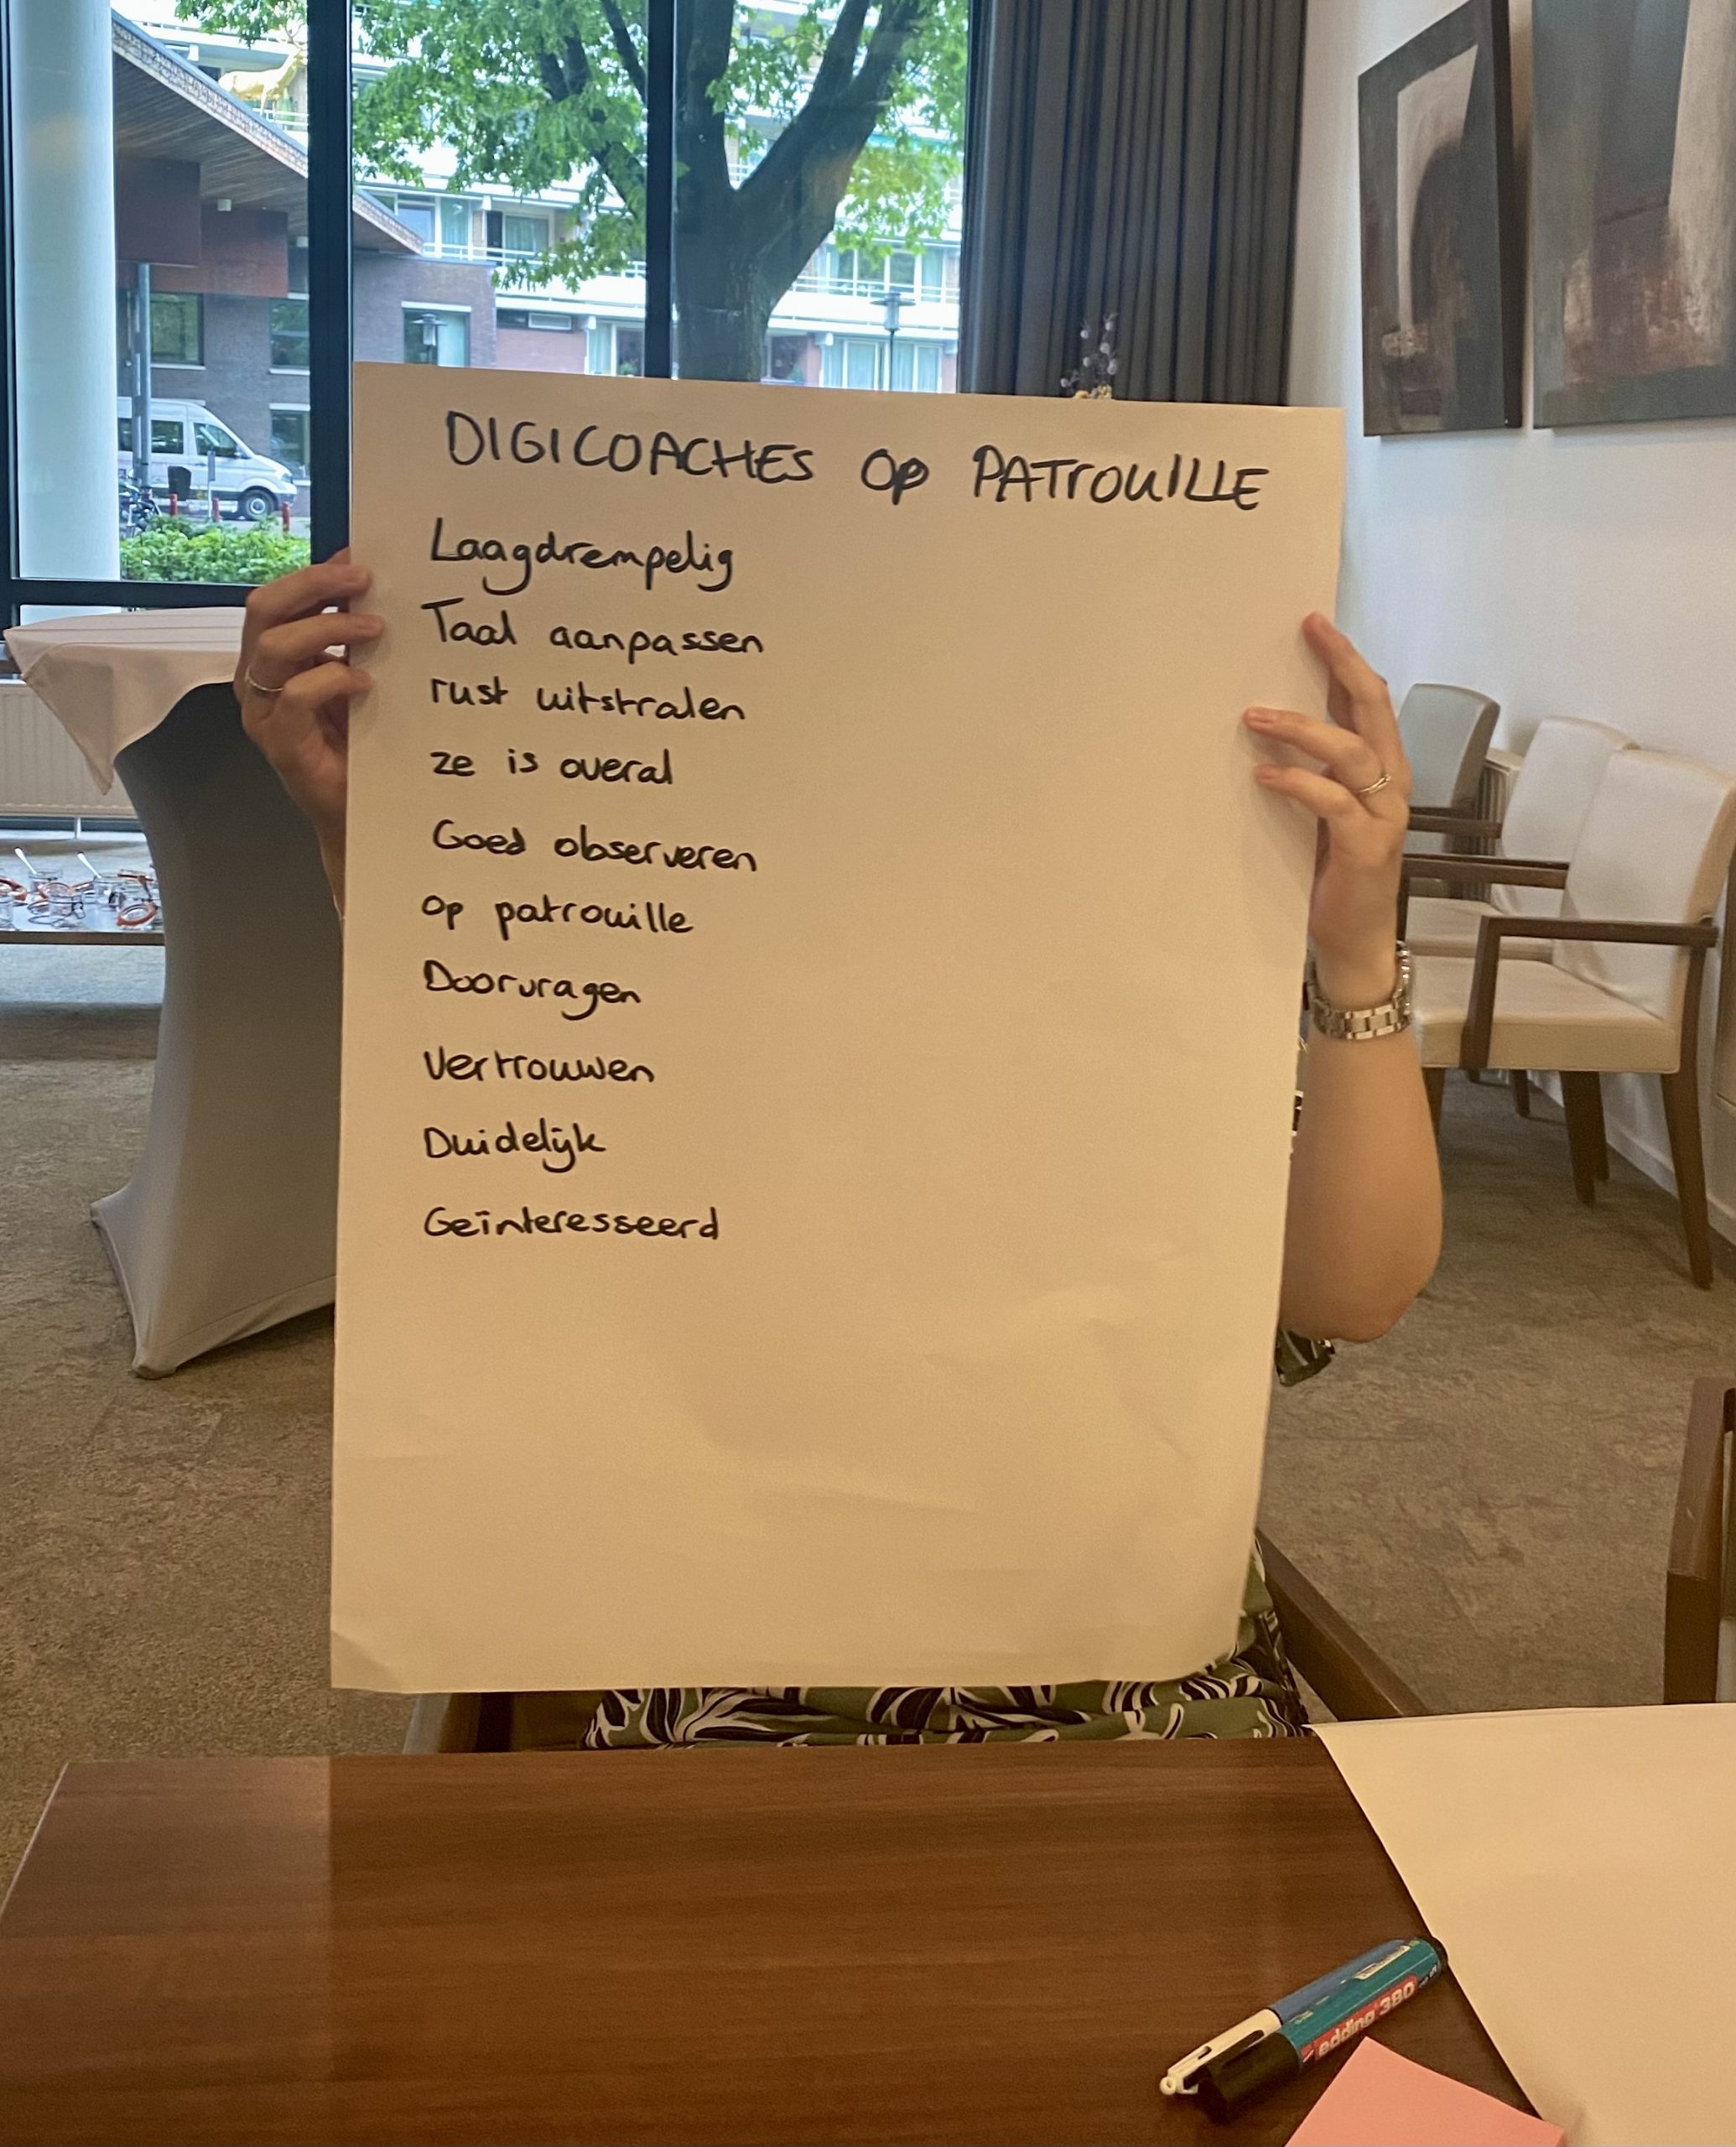 DIGICOACHES OP PATROUILLE
Laagdrempelig
Taal aanpassen
rust uitstralen
ze is overal
Goed observeren
op patrouille
Doorvragen
Vertrouwen
Duidelijk
Geïnteresseerd
edding 380